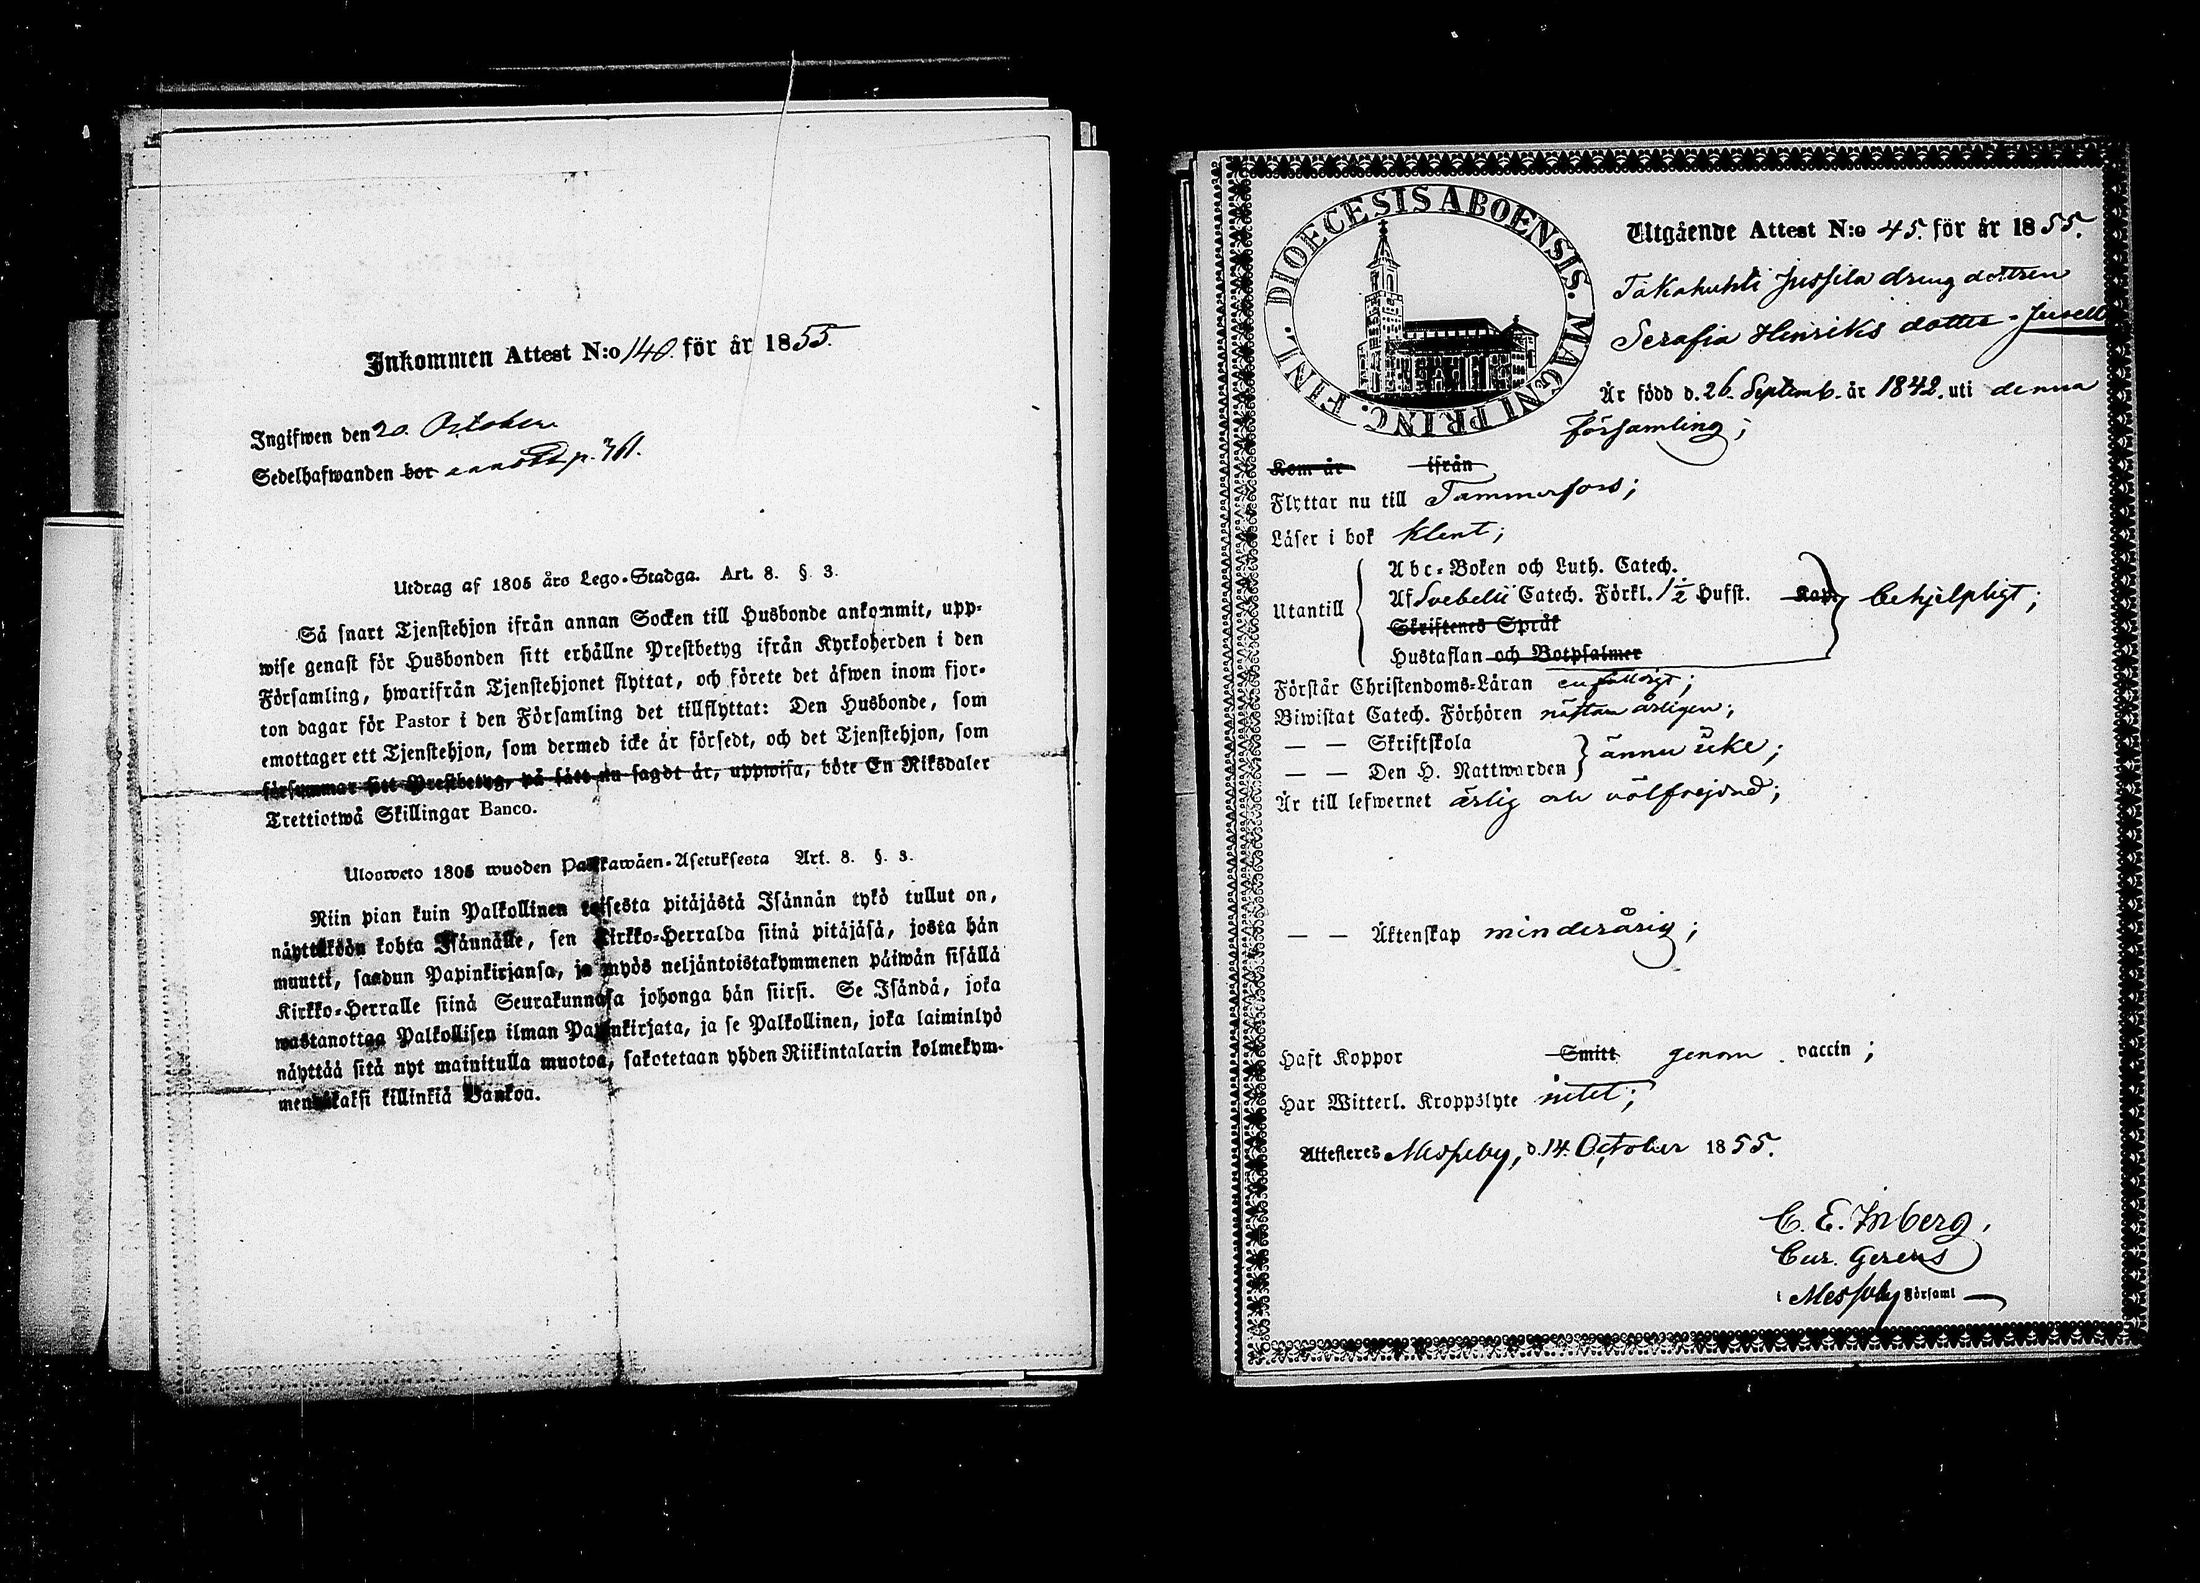 Inkommen Attest N:o 140. för år 1855.
Ingifwen den 20. October
Sedelhafwanden bor p. 761.
Utdrag af 1805 års Lego-Stadga. Art. 8. §. 3.
Så snart Tjenstehjon ifrån annan Socken till Husbonde ankommit, upp-
wise genast för Husbonden sitt erhållne Prestbetyg ifrån Kyrkoherden i den
Församling, hwarifrån Tjenstehjonet flyttat, och förete det äfwen inom fjor-
ton dagar för Pastor i den Församling det tillflyttat: Den Husbonde, som
emottager ett Tjenstehjon, som dermed icke är försedt, och det Tjenstehjon, som
försummar sitt Prestbetyg, på sätt nu sagdt är, uppwisa, böte En Riksdaler
Trettiotwå Skillingar Banco.
Ulosweto 1805 wuoden Palkkawäen-Asetuksesta Art. 8. §. 3.
Niin pian kuin Palkollinen toisesta pitäjästä Isännän tykö tullut on,
näyttäköön kohta Isännälle, sen Kirkko-Herralda siinä pitäjäsä, josta hän
muutti, saadun Papinkirjansa, ja myös neljäntoistakymmenen päiwän sisällä
Kirkko-Herralle siinä Seurakunnasa johonga hän siirsi. Se Isändä, joka
wastanottaa Palkollisen ilman Papinkirjata, ja se Palkollinen, joka laiminlyö
näyttää sitä nyt mainitulla muotoa, sakotetaan yhden Riikintalarin kolmekym-
mentäkaksi killinkiä Bankoa.
FINL. DIOECESIS ABOENSIS. MAGNI PRINC.
Utgående Attest N:o 45. för år 1855.
Takahuhti Jussila dreng dottren
Serafia Henriks dotter - Jusell
Är född d. 26. Septemb. år 1842. uti denna
församling;
Kom år ifrån
Flyttar nu till Tammerfors;
Läser i bok klent;
Abc-Boken och Luth. Catech.
Utantill Af Svebelii Catech. Förkl. 1½ Hufst. Kap. behjelpligt;
Skriftenes Språk
Hustaflan och Botpsalmer
Förstår Christendoms-Läran enfalldigt;
Biwistat Catech. Förhören nästan årligen;
— — Skriftskola
ännu icke;
— — Den H. Nattwarden
Är till lefwernet ärlig och välfrejdad;
— — Äktenskap minderårig;
Haft Koppor Smitt genom vaccin;
Har Witterl. Kroppslyte intet;
Attesteres Messuby, d. 14. October 1855.
C. E. Inberg,
Cur. Gerens
i Messuby Församl